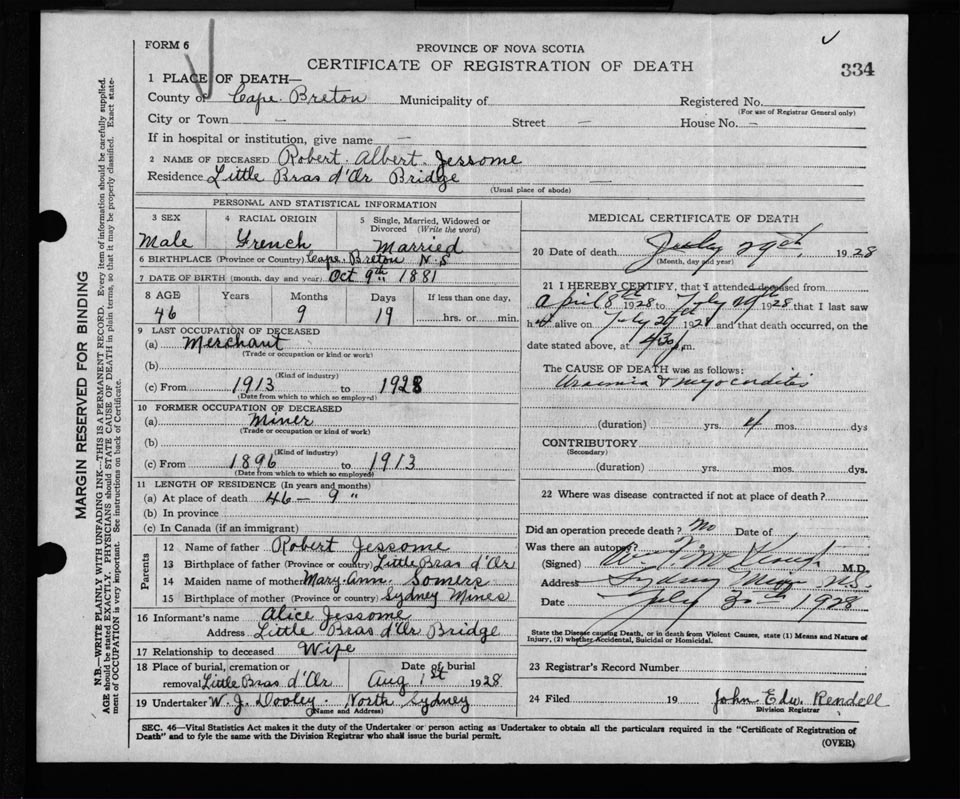 FORM 6
PROVINCE OF NOVA SCOTIA
CERTIFICATE OF REGISTRATION OF DEATH
334
1 PLACE OF DEATH—
County of Cape Breton Municipality of Registered No.
(For use of Registrar General only)
City or Town — Street — House No. —
If in hospital or institution, give name —
2 NAME OF DECEASED Robert Albert Jessome
Residence Little Bras d'Or Bridge —
(Usual place of abode)
PERSONAL AND STATISTICAL INFORMATION
3 SEX 4 RACIAL ORIGIN 5 Single, Married, Widowed or Divorced (Write the word)
Male French Married
6 BIRTHPLACE (Province or Country) Cape Breton N.S
7 DATE OF BIRTH (month, day and year) Oct 9th 1881
8 AGE Years Months Days If less than one day,
46 9 19 hrs. or min.
9 LAST OCCUPATION OF DECEASED
(a) Merchant
(Trade or occupation or kind or work)
(b)
(Kind of industry)
(c) From 1913 to 1928
(Date from which to which so employed)
10 FORMER OCCUPATION OF DECEASED
(a) Miner
(Trade or occupation or kind of work)
(b)
(Kind of industry)
(c) From 1896 to 1913
(Date from which to which so employed)
11 LENGTH OF RESIDENCE (In years and months)
(a) At place of death 46 — 9 "
(b) In province
(c) In Canada (if an immigrant)
Parents
12 Name of father Robert Jessome
13 Birthplace of father (Province or country) Little Bras d'Or
14 Maiden name of mother Mary Ann Somers
15 Birthplace of mother (Province or country) Sydney Mines
16 Informant's name Alice Jessome
Address Little Bras d'Or Bridge
17 Relationship to deceased Wife
18 Place of burial, cremation or Date of burial
removal Little Bras d'Or Aug 1st 1928
19 Undertaker W. J. Dooley North Sydney
(Name and Address)
MEDICAL CERTIFICATE OF DEATH
20 Date of death July 29th, 1928
(Month, day and year)
21 I HEREBY CERTIFY, that I attended deceased from
April 8th 1928 to July 29th 1928 that I last saw
h alive on July 29th 192 and that death occurred, on the
date stated above, at 430 p.m.
The CAUSE OF DEATH was as follows:
Uraemia & myocarditis
(duration) yrs. 4 mos. dys
CONTRIBUTORY
(Secondary)
(duration) yrs. mos. dys.
22 Where was disease contracted if not at place of death?
Did an operation precede death? no Date of
Was there an autopsy?
(Signed) M.D.
Address Sydney Mines N.S.
Date July 30th 1928
State the Disease causing Death, or in death from Violent Causes, state (1) Means and Nature of
Injury, (2) whether Accidental, Suicidal or Homicidal.
23 Registrar's Record Number
24 Filed 19 John Edw. Rendell
Division Registrar
SEC. 46—Vital Statistics Act makes it duty of the Undertaker or person acting as Undertaker to obtain all the particulars required in the "Certificate of Registration of
Death" and to fyle the same with the Division Registrar who shall issue the burial permit.
(OVER)
MARGIN RESERVED FOR BINDING
N.B.—WRITE PLAINLY WITH UNFADING INK—THIS IS A PERMANENT RECORD. Every item of information should be carefully supplied.
AGE should be stated EXACTLY. PHYSICIANS should STATE CAUSE OF DEATH in plain terms, so that it may be properly classified. Exact state-
ment of OCCUPATION is very important. See instructions on back of Certificate.